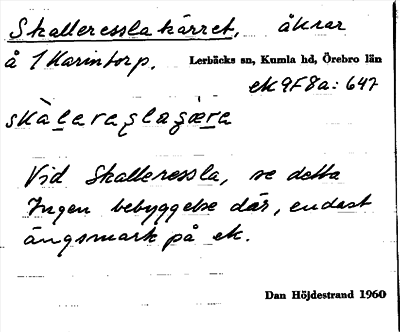 Skalleresslakärret, åkrar
å 1 Karintorp. Lerbäcks sn, Kumla hd, Örebro län
ek 9F8a: 647
skàlereslaçære
Vid Skalleressla, se detta
Ingen bebyggelse där, endast
ängsmark på ek.
Dan Höjdestrand 1960